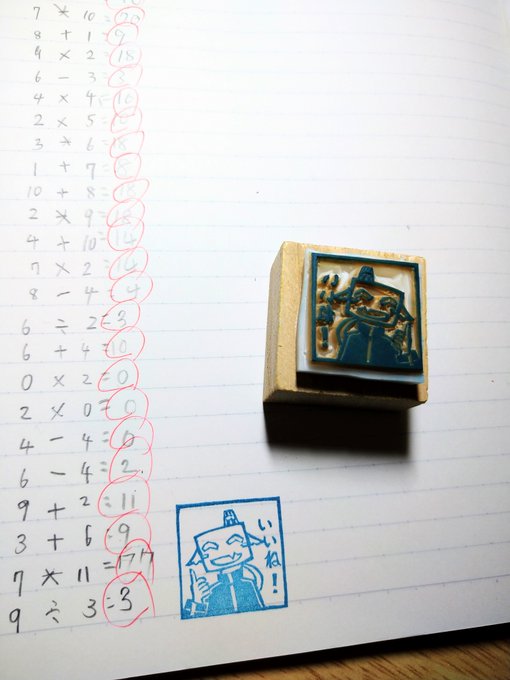 7 × 10 =
8 + 1 = 9
9 × 2 = 18
6 - 3 = 3
4 × 4 = 16
2 × 5 =
3 × 6 = 18
1 + 7 = 8
10 + 8 = 18
2 × 9 = 18
4 + 10 = 14
7 × 2 = 14
8 - 4 = 4
6 ÷ 2 = 3
6 + 4 = 10
0 × 2 = 0
2 × 0 = 0
4 - 4 = 0
6 - 4 = 2
9 + 2 = 11
3 + 6 = 9
7 × 11 = 77
9 ÷ 3 = 3
いいね!